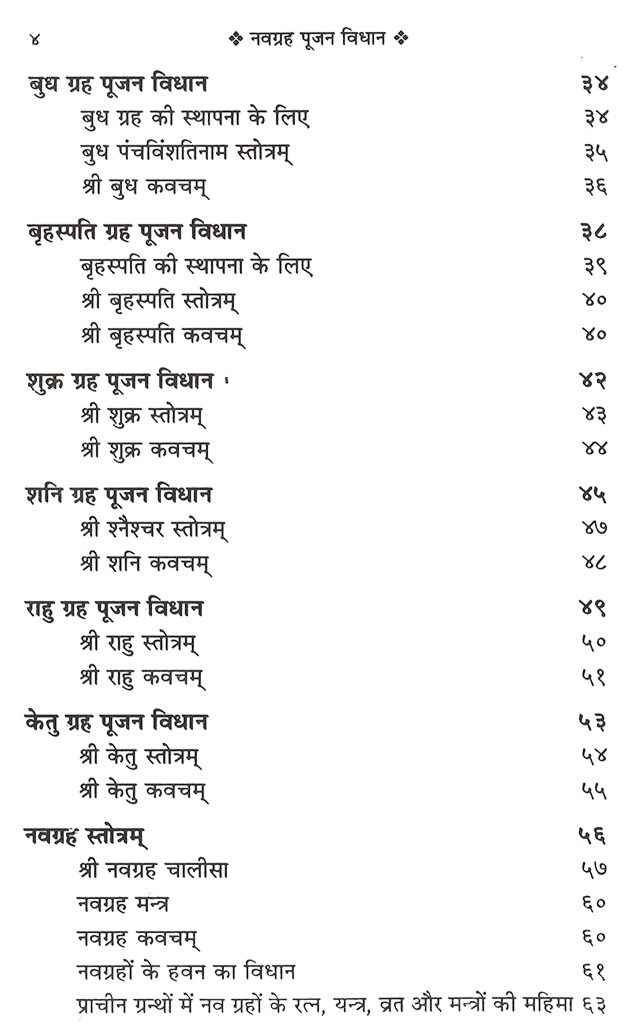 ४ ❖ नवग्रह पूजन विधान ❖
बुध ग्रह पूजन विधान ३४
बुध ग्रह की स्थापना के लिए ३४
बुध पंचविंशतिनाम स्तोत्रम् ३५
श्री बुध कवचम् ३६
बृहस्पति ग्रह पूजन विधान ३८
बृहस्पति की स्थापना के लिए ३९
श्री बृहस्पति स्तोत्रम् ४०
श्री बृहस्पति कवचम् ४०
शुक्र ग्रह पूजन विधान ४२
श्री शुक्र स्तोत्रम् ४३
श्री शुक्र कवचम् ४४
शनि ग्रह पूजन विधान ४५
श्री श्नैश्चर स्तोत्रम् ४७
श्री शनि कवचम् ४८
राहु ग्रह पूजन विधान ४९
श्री राहु स्तोत्रम् ५०
श्री राहु कवचम् ५१
केतु ग्रह पूजन विधान ५३
श्री केतु स्तोत्रम् ५४
श्री केतु कवचम् ५५
नवग्रह स्तोत्रम् ५६
श्री नवग्रह चालीसा ५७
नवग्रह मन्त्र ६०
नवग्रह कवचम् ६०
नवग्रहों के हवन का विधान ६१
प्राचीन ग्रन्थों में नव ग्रहों के रत्न, यन्त्र, व्रत और मन्त्रों की महिमा ६३